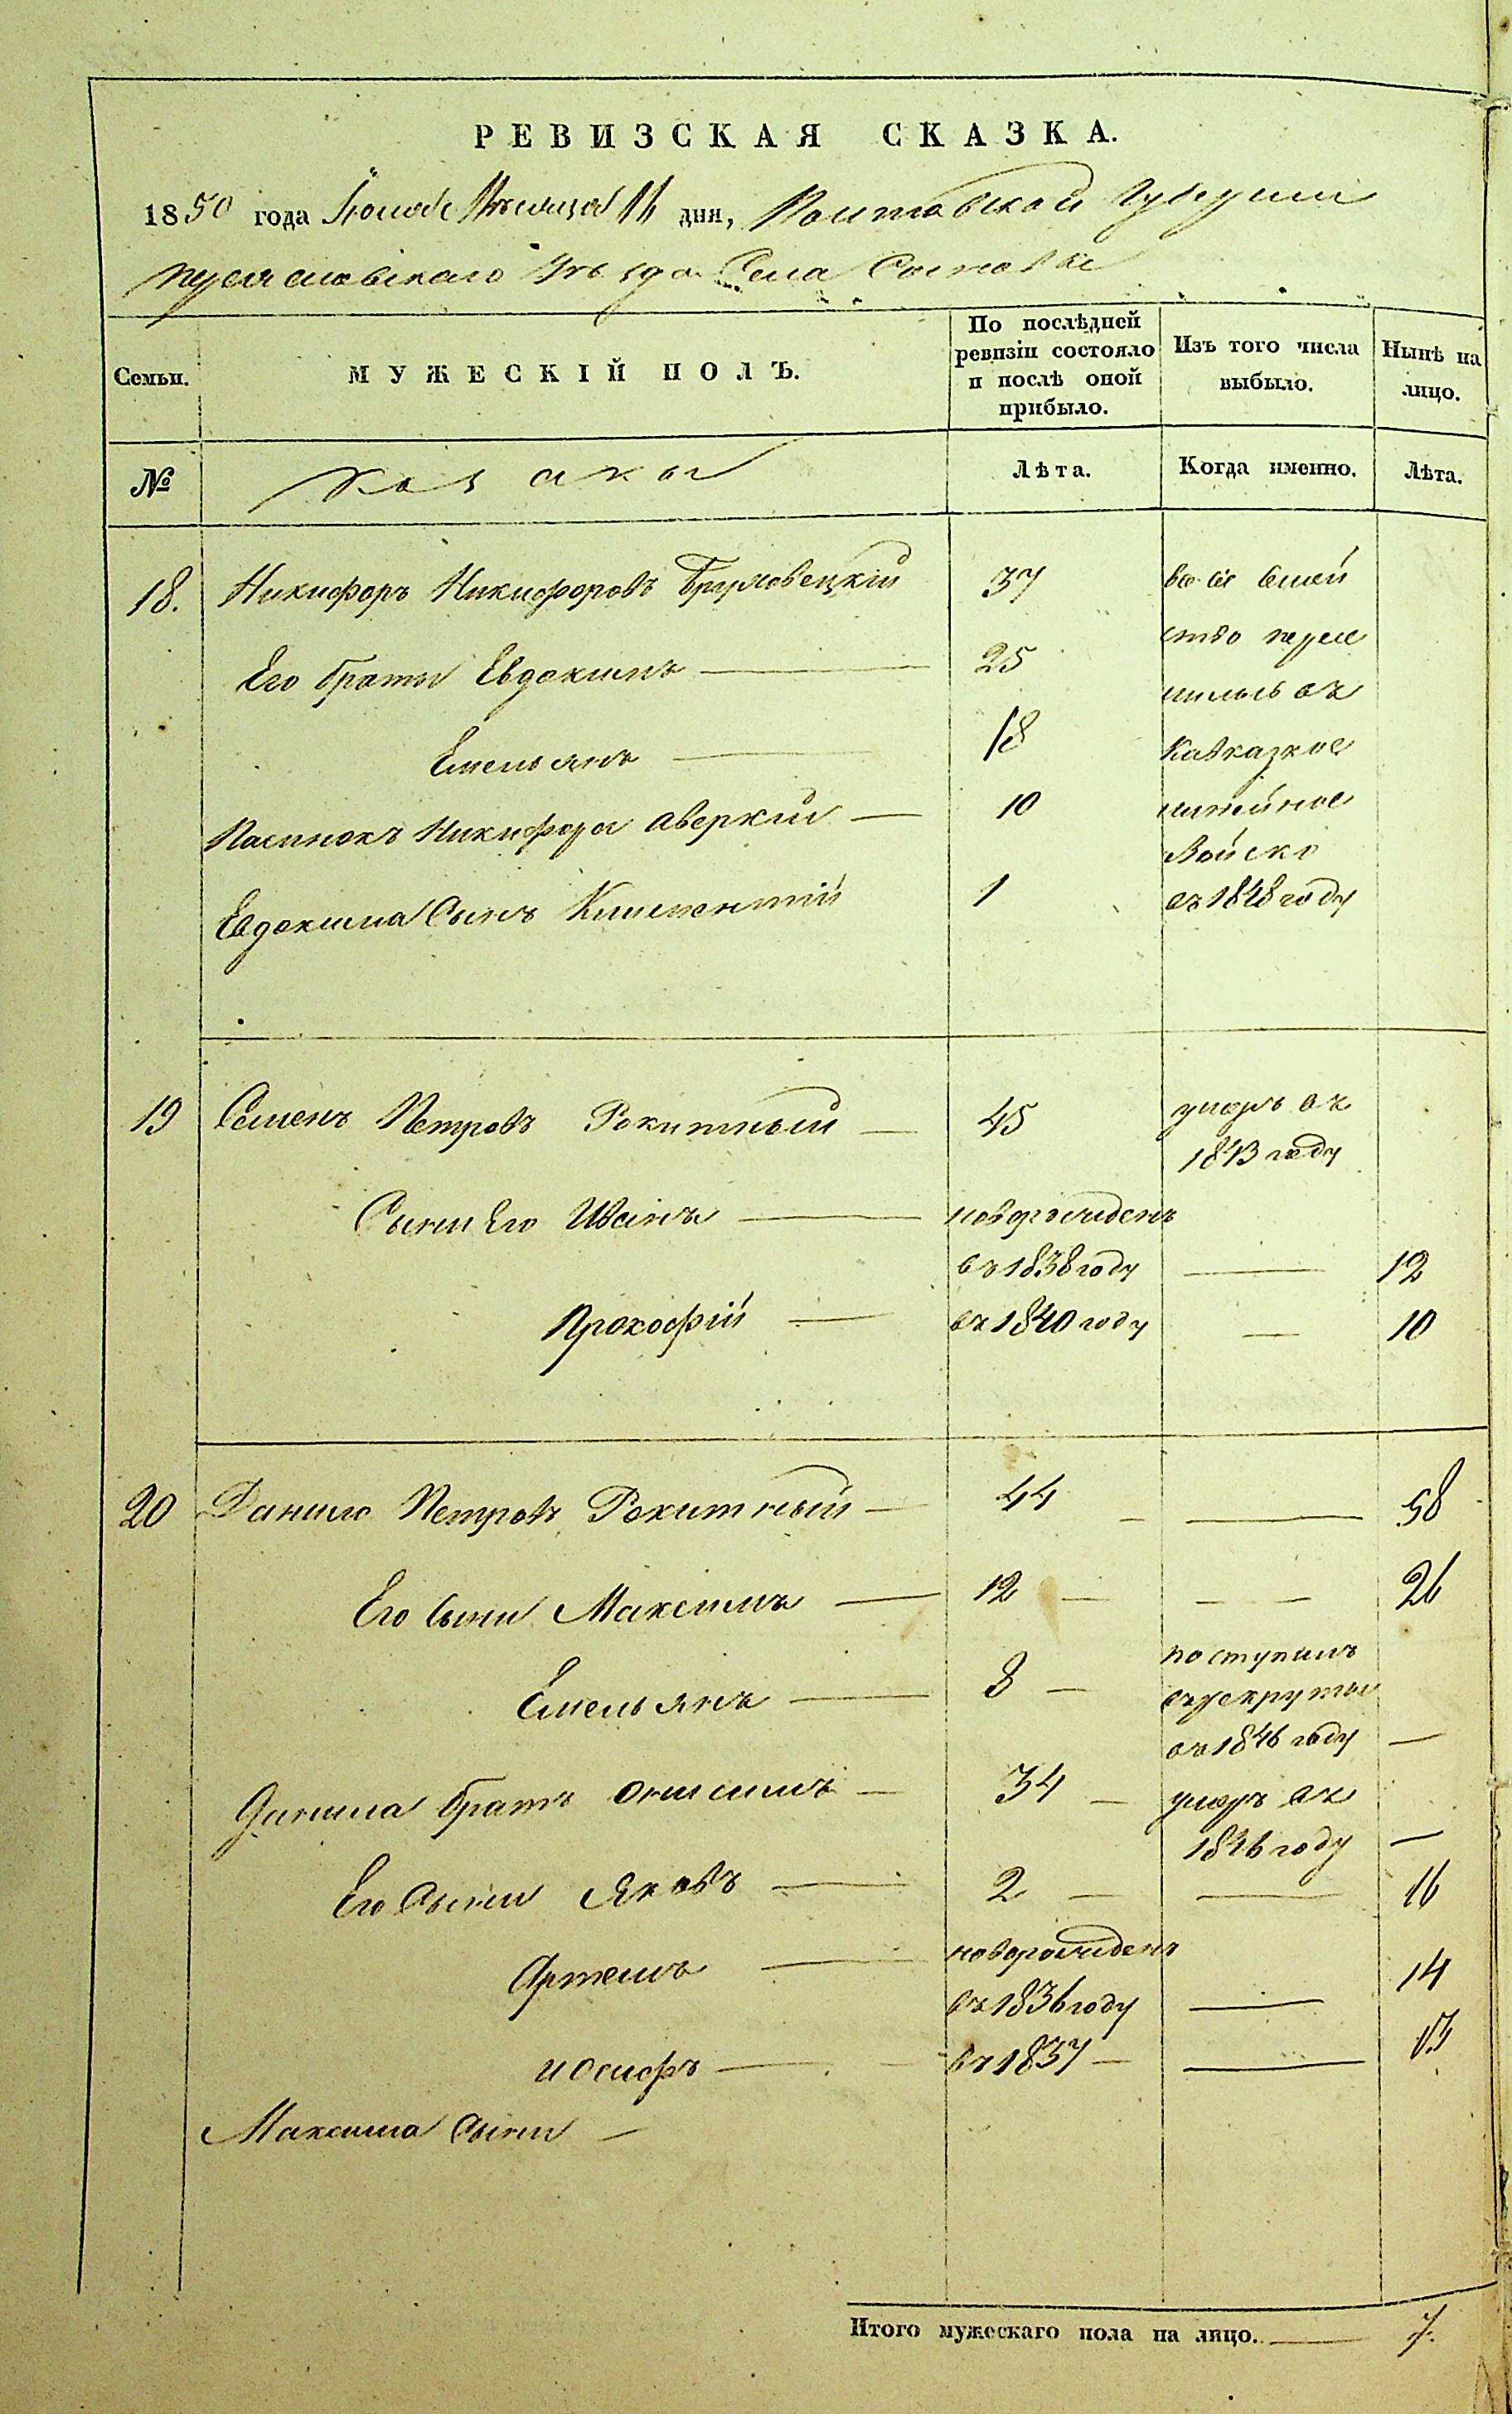 РЕВИЗСКАЯ СКАЗКА.
1850 года Іюля Мѣсяца 16 дня, Полтавской Губерніи
Переяславскаго Уѣзда Села Сосновки
Семьи.
МУЖЕСКІЙ ПОЛЪ.
По послѣдней ревизіи состояло и послѣ оной прибыло.
Изъ того числа выбыло.
Нынѣ на лицо.
№
Козаки
Лѣта.
Когда именно.
Лѣта.
18. Никифоръ Никифоровъ Бруховецкій 37
Его браты Евдокимъ — 25
Емельянъ — 18
Пасинокъ Никифора Аверкій — 10
Евдокима Сынъ Климентій 1
все сіе семей
ство пересе
лилось въ
Кавказкое
линейное
Войско
въ 1848 году
19 Семенъ Петровъ Рокитный — 45 умеръ въ
1843 году
Сыни Его Иванъ — новорожденъ
въ 1838 году — 12
Прокофій — въ 1840 году — 10
20 Данило Петровъ Рокитный — 44 — — 58
Его сыни Максимъ — 12 — — — 26
Емельянъ — 8 — поступилъ
въ рекруты
въ 1846 году —
Данила братъ Онисимъ — 34 — умеръ въ
1846 году —
Его Сыни Яковъ — 2 — — 16
Артемъ — новорожденъ
въ 1836 году — 14
Иосифъ — въ 1837 — — 13
Максима Сыни —
Итого мужескаго пола на лицо. — 7.